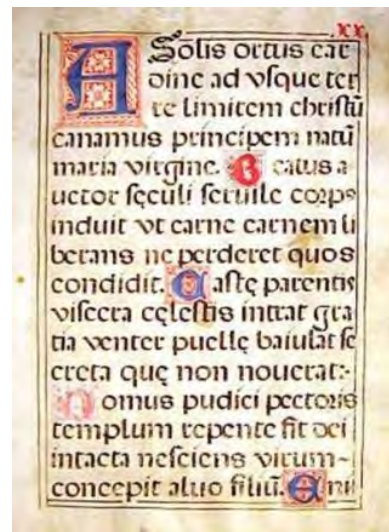 XX
A Solis ortus car
dine ad vsque ter
re limitem christū
canamus principem natū
maria virgine. Beatus a
uctor sęculi seruile corpꝰ
induit vt carne carnem li
berans ne perderet quos
condidit. Castę parentis
viscera cęlestis intrat gra
tia venter puellę baiulat se
creta quę non nouerat:·
Domus pudici pectoris
templum repente fit dei
intacta nesciens virum~
concepit aluo filiū. Eni